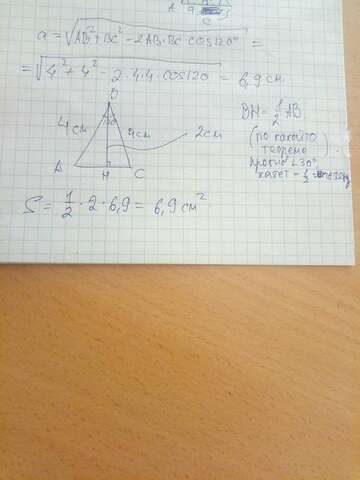 A
C
a = √AB² + BC² - 2AB · BC · cos120° =
= √4² + 4² - 2·4·4·cos120 = 6,9 см.
B
4 см
4 см
2 см
A
H
C
BH = 1/2 AB.
(по какойто
теореме)
против ∠30°
катет - 1/2
S = 1/2 · 2 · 6,9 = 6,9 см²